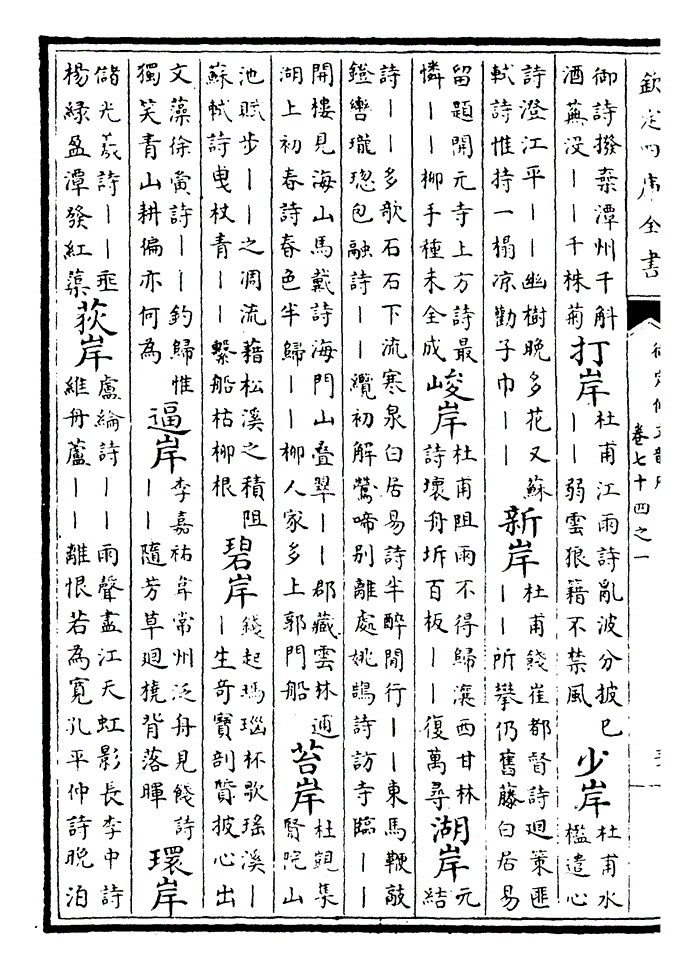 欽定四庫全書
卷七十四之一
御詩撥棄潭州千斛
酒蕪没丨丨千株菊
打岸
杜甫江雨詩亂波分披已
丨丨弱雲狼籍不禁風
少岸
杜甫水
檻遣心
詩澄江平丨丨幽樹晚多花又蘇
軾詩惟持一榻凉勸子巾丨丨
新岸
杜甫餞崔都督詩廻策匪
丨丨所攀仍舊藤白居易
留題開元寺上方詩最
憐丨丨柳手種未全成
峻岸
杜甫阻雨不得歸瀼西甘林
詩壞舟坼百板丨丨復萬尋
湖岸
元
結
詩丨丨多欹石石下流寒泉白居易詩半醉閒行丨丨東馬鞭敲
鐙轡瓏璁包融詩丨丨纜初解鶯啼别離處姚鵠詩訪寺臨丨丨
開樓見海山馬戴詩海門山疊翠丨丨郡藏雲林逋
湖上初春詩春色半歸丨丨柳人家多上郭門船
苔岸
杜覬集
賢院山
池賦步丨丨之凋流藉松溪之積阻
蘇軾詩曳杖青丨丨繫船枯柳根
碧岸
錢起瑪瑙杯歌瑤溪丨
丨生奇寳剖質披心出
文藻徐夤詩丨丨釣歸惟
獨笑青山耕徧亦何為
逼岸
李嘉祐韋常州泛舟見餞詩
丨丨隨芳草廻橈背落暉
環岸
儲光羲詩丨丨垂
楊緑盈潭發紅蕖
荻岸
盧綸詩丨丨雨聲盡江天虹影長李中詩
維舟蘆丨丨離恨若為寛孔平仲詩晚泊